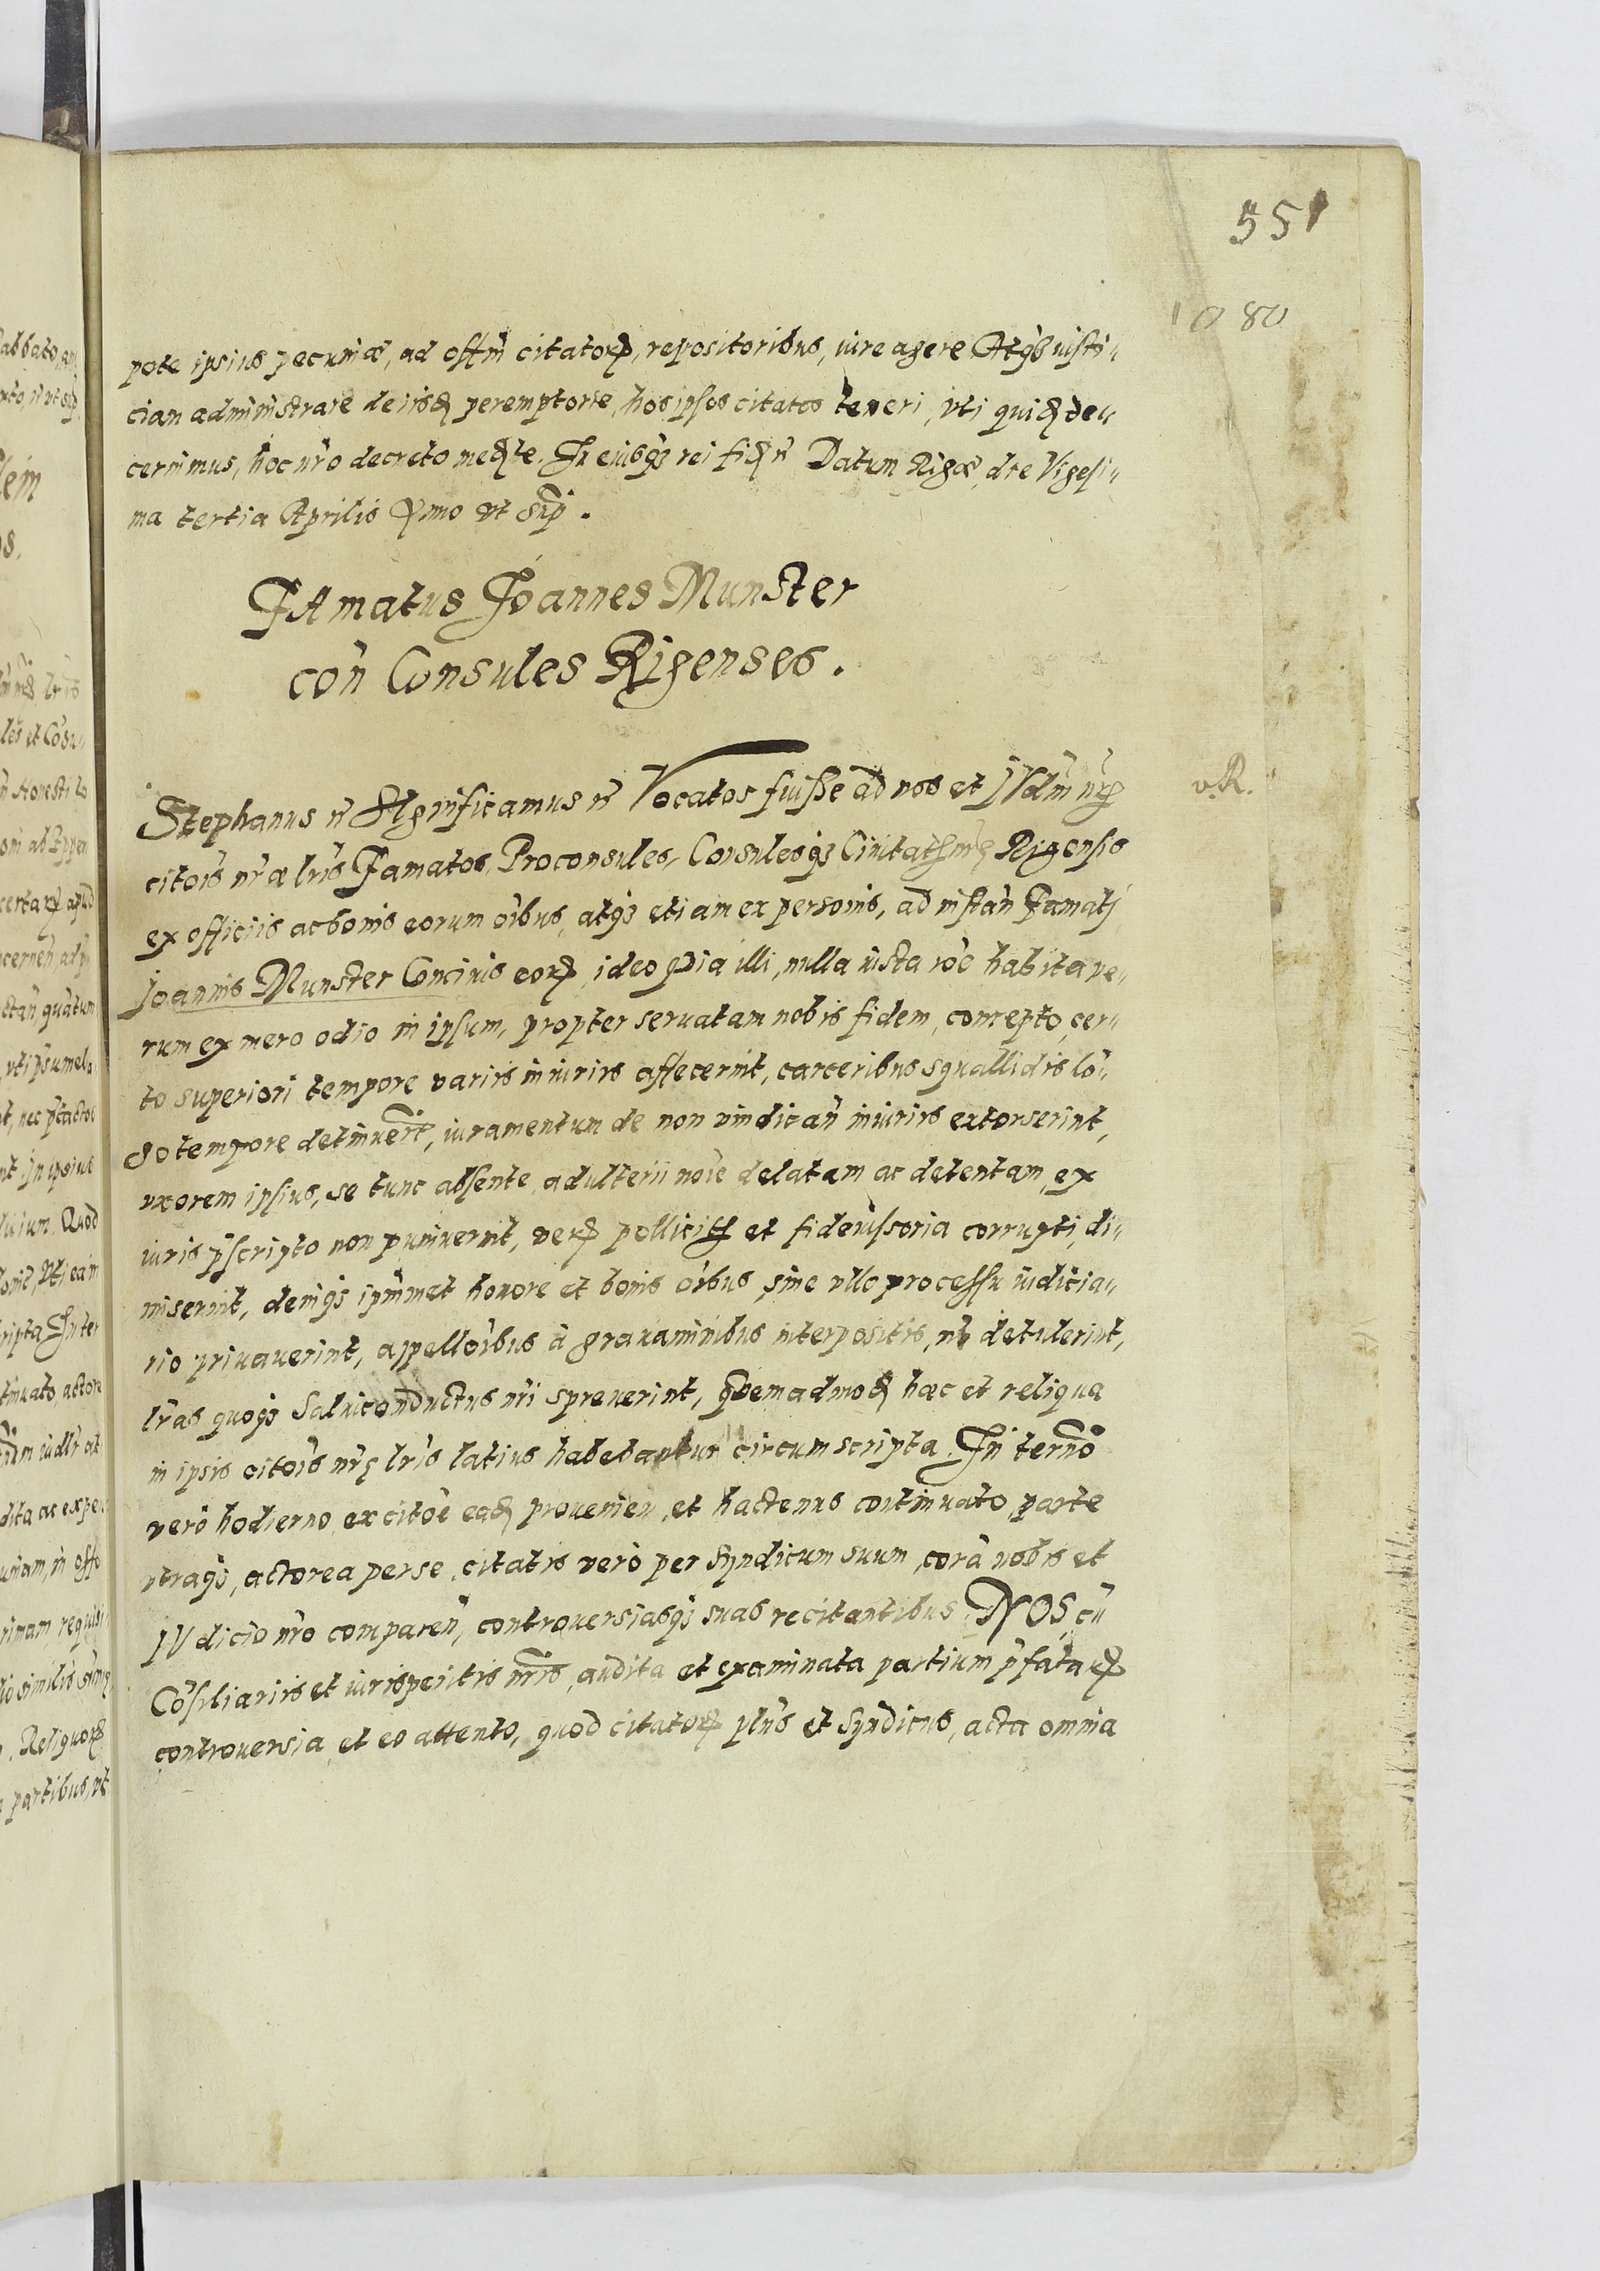 551
1080
pote ipsius pecuniæ, ad offm citatorꝝ, repositoribus, iure agere Atqꝫ iusti„
ciam administrare de iisdꝫ peremptorie, hos ipsos citatos teneri, vti quidꝫ de„
cernimus, hoc nr̃o decreto medꝫte. In cuibqꝫ rei fidꝫ ñ Datum Rigæ, die Vigesi„
ma tertia Aprilis Anno vt sup̃.
FAmatus Joannes Munster
coñ Consules Rigenses.
v.R.
Stephanus ñ Significamus ñ Vocatos fuisse ad nos et IVdm̃ nr̃ꝝ
citoĩs nr̃æ lrĩs Famatos, Proconsules, Consulesqꝫ Ciuitatis nr̃ę Rigensis
ex officiis ac bonis eorum oĩbus, atqꝫ etiam ex personis, ad instañ Famati
Joannis Munster Conciuis eorꝝ, ideo quia illi, nulla iusta rõe habita ve„
rum ex mero odio in ipsum, propter seruatam nobis fidem, concepto, cer„
to superiori tempore variis iniuriis affecerint, carceribus squallidis lõ„
go tempore detinuer̃t, iuramentum de non vindicañ iniuriis extorserint,
vxorem ipsius, se tunc absente, adulterii noĩe delatam ac detentam, ex
iuris p̃scripto non puniuerint, verꝝ pollicitis et fideiussoria corrupti, di„
miserint, deniqꝫ ipm̃met honore et bonis oĩbus, sine vllo processu iudicia„
rio priuauerint, appelloĩbus à grauaminibus interpositis, ñ detulerint,
lr̃as quoqꝫ Saluiconductus nr̃i spreuerint, quemadmodꝫ hæc et reliqua
in ipsis citoĩs nr̃ę lrĩs latius habebantur circumscripta. In termo
verò hodierno, ex citoẽ eadꝫ proueñien, et hactenus continuato, parte
vtraqꝫ, actorea per se, citatis verò per Syndicum suum, corã nobis et
IVdicio nr̃o compareñ, controuersiasqꝫ suas recitantibus. NOS, cũ
Cõsiliariis et iurisperitis nr̃is, audita et examinata partium p̃fatarꝝ
controuersia, et eo attento, quod citatorꝝ plñs et Syndicus, acta omnia